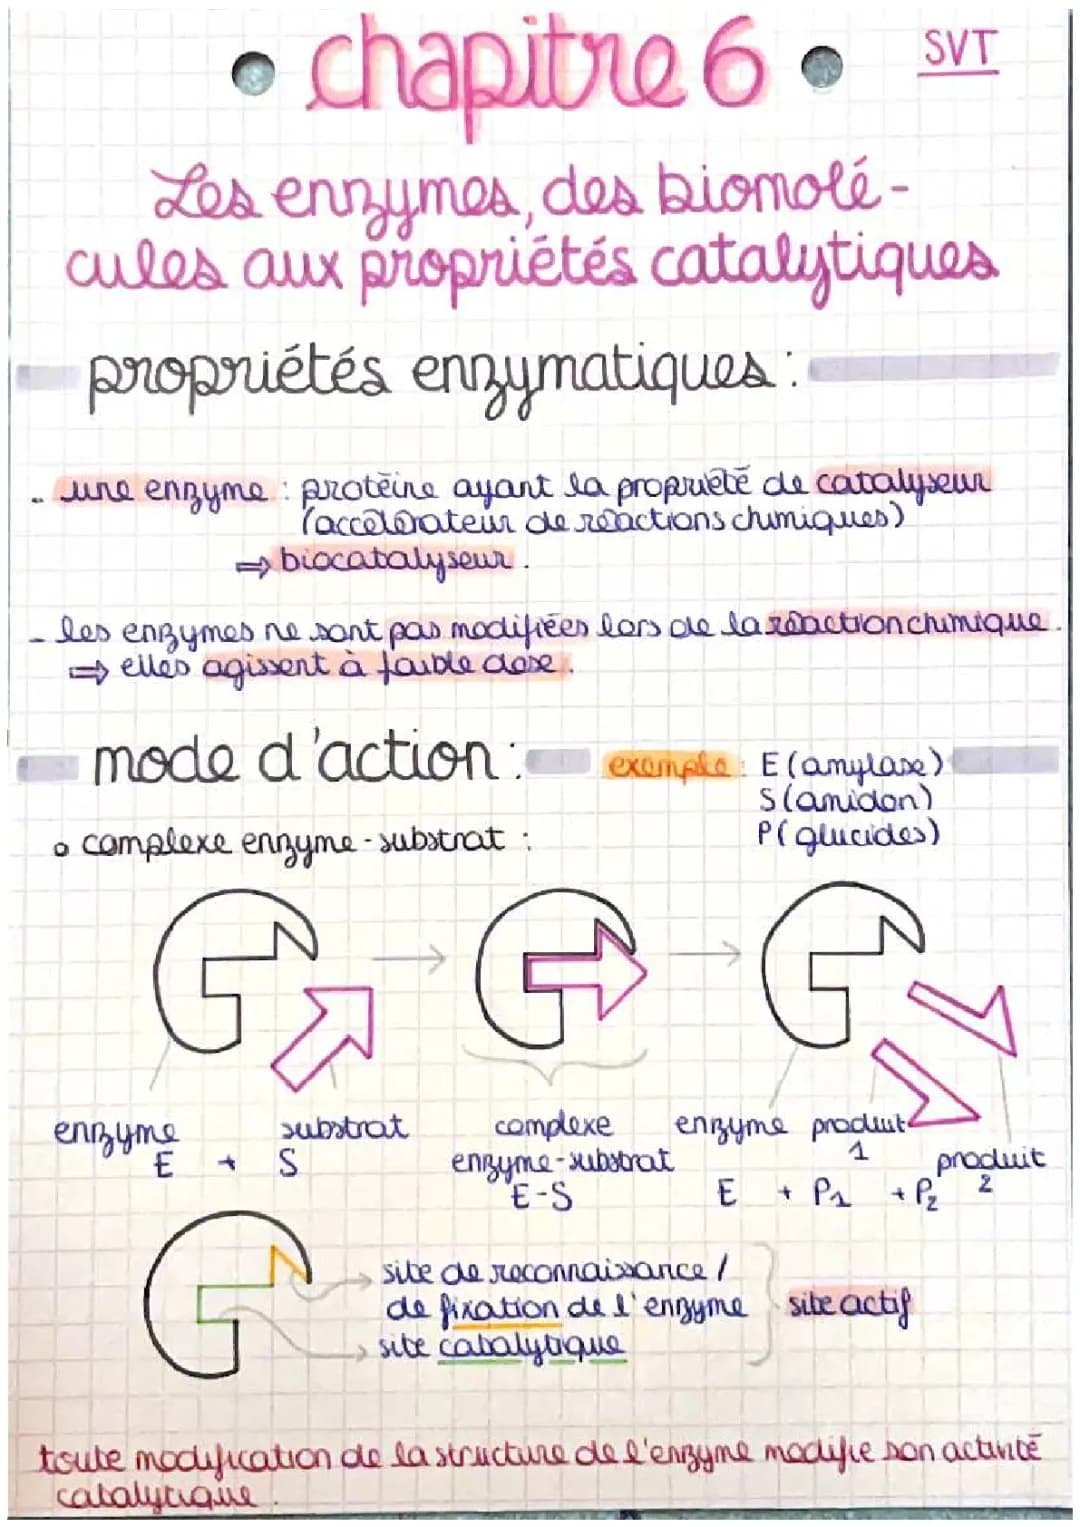 chapitre 6
SVT
Les enzymes, des biomolé-
cules aux propriétés catalytiques
propriétés enzymatiques :
- une enzyme : protéine ayant la propriété de catalyseur
(accélérateur de réactions chimiques)
⇒ biocatalyseur.
- les enzymes ne sont pas modifiées lors de la réaction chimique.
⇒ elles agissent à faible dose.
mode d'action :
exemple : E (amylase)
S (amidon)
P (glucides)
o complexe enzyme-substrat :
enzyme substrat complexe enzyme produit
E + S enzyme-substrat 1 produit
E-S E + P1 + P2 2
site de reconnaissance /
de fixation de l'enzyme site actif
site catalytique
toute modification de la structure de l'enzyme modifie son activité
catalytique.